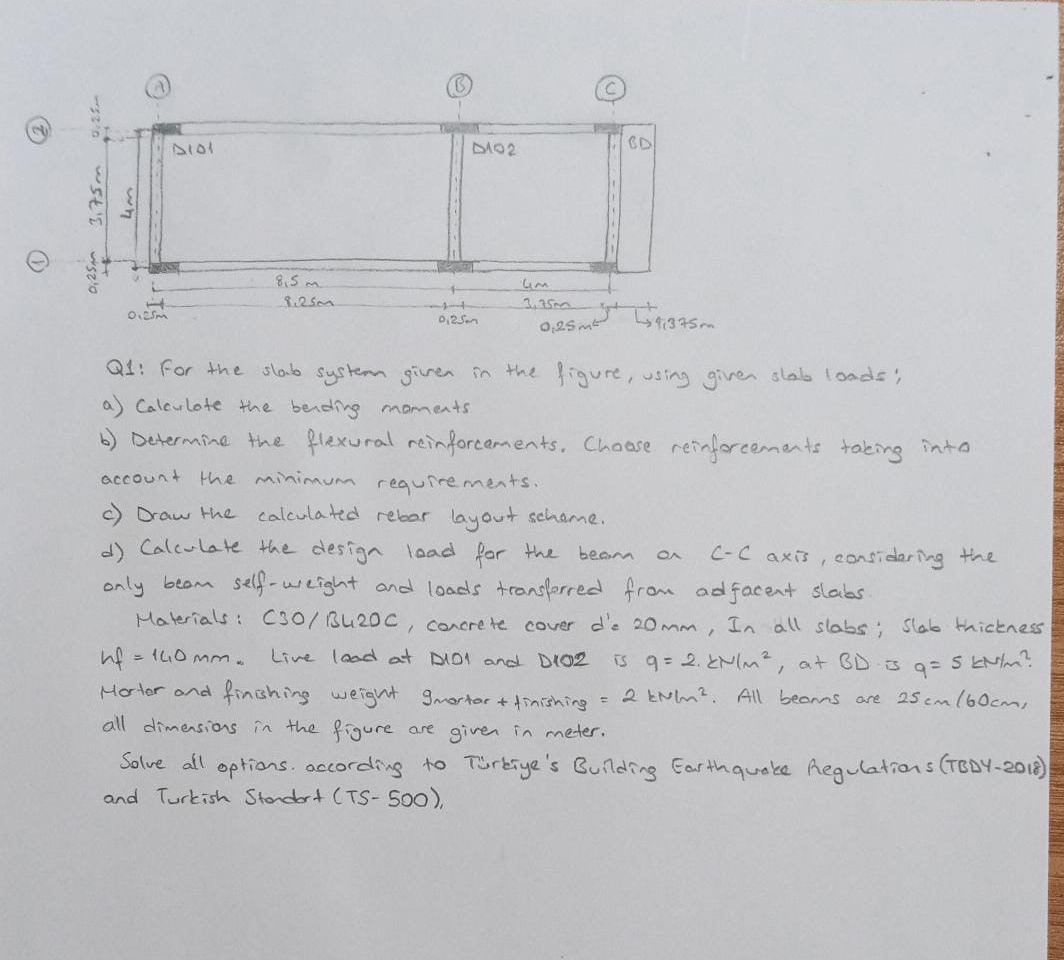 A B C
2
1
0,25m
3,75m
4m
0,25m
D101 D102 BD
8,5 m 4m
8,25m 3,75m
0,25m 0,25m 0,25m 1,375m
Q1: For the slab system given in the figure, using given slab loads;
a) Calculate the bending moments
b) Determine the flexural reinforcements. Choose reinforcements taking into
account the minimum requirements.
c) Draw the calculated rebar layout scheme.
d) Calculate the design load for the beam on C-C axis, considering the
only beam self-weight and loads transferred from adjacent slabs
Materials: C30/B420C, concrete cover d'= 20mm, In all slabs; slab thickness
hf = 140mm. Live load at D101 and D102 is q=2 kN/m², at BD is q= 5 kN/m².
Mortar and finishing weight gmortar + finishing = 2 kN/m². All beams are 25cm/60cm,
all dimensions in the figure are given in meter.
Solve all options. according to Türkiye's Building Earthquake Regulations (TBDY-2018)
and Turkish Standart (TS-500),